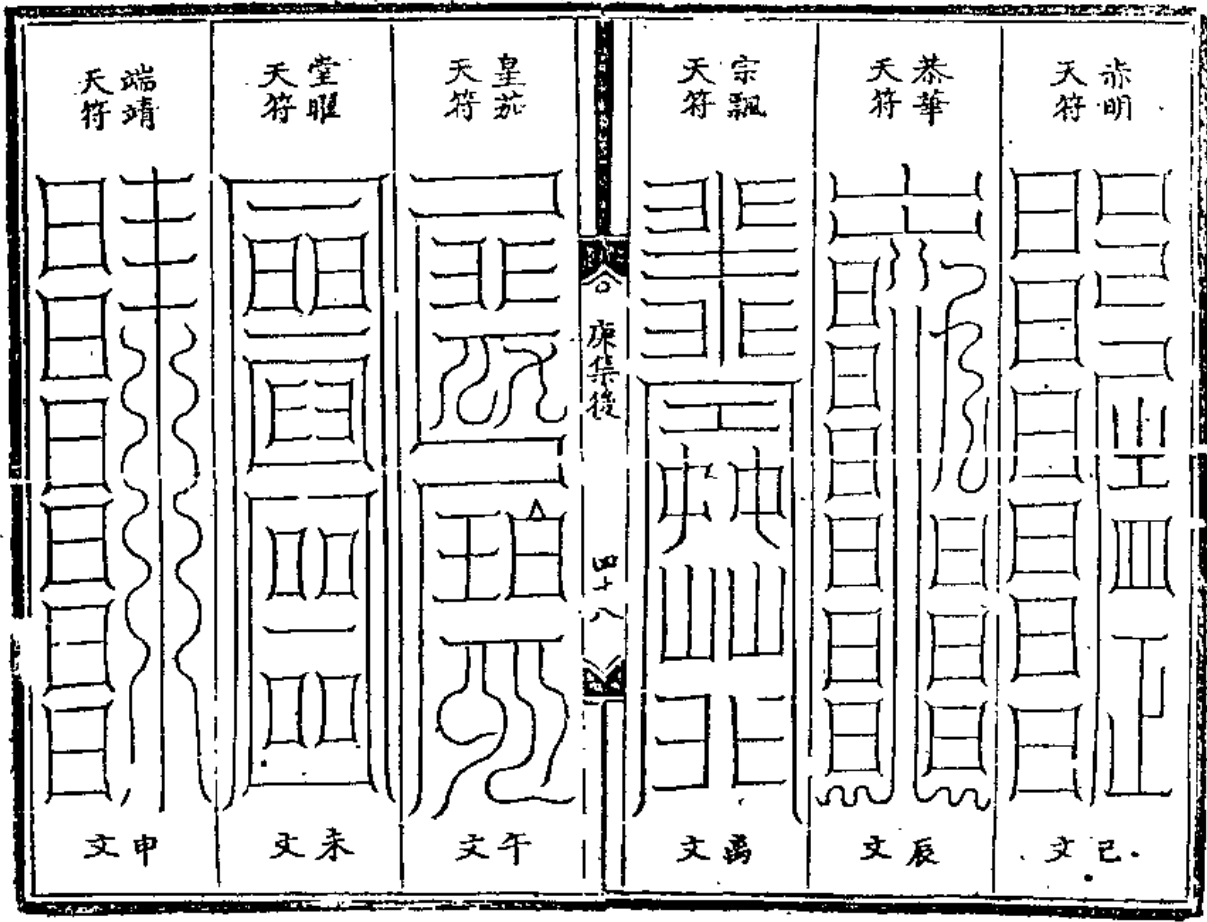 赤明
天符
已文
恭華
天符
辰文
宗飄
天符
禹文
庚集後
四十八
皇茄
天符
午文
堂曜
天符
未文
端靖
天符
申文